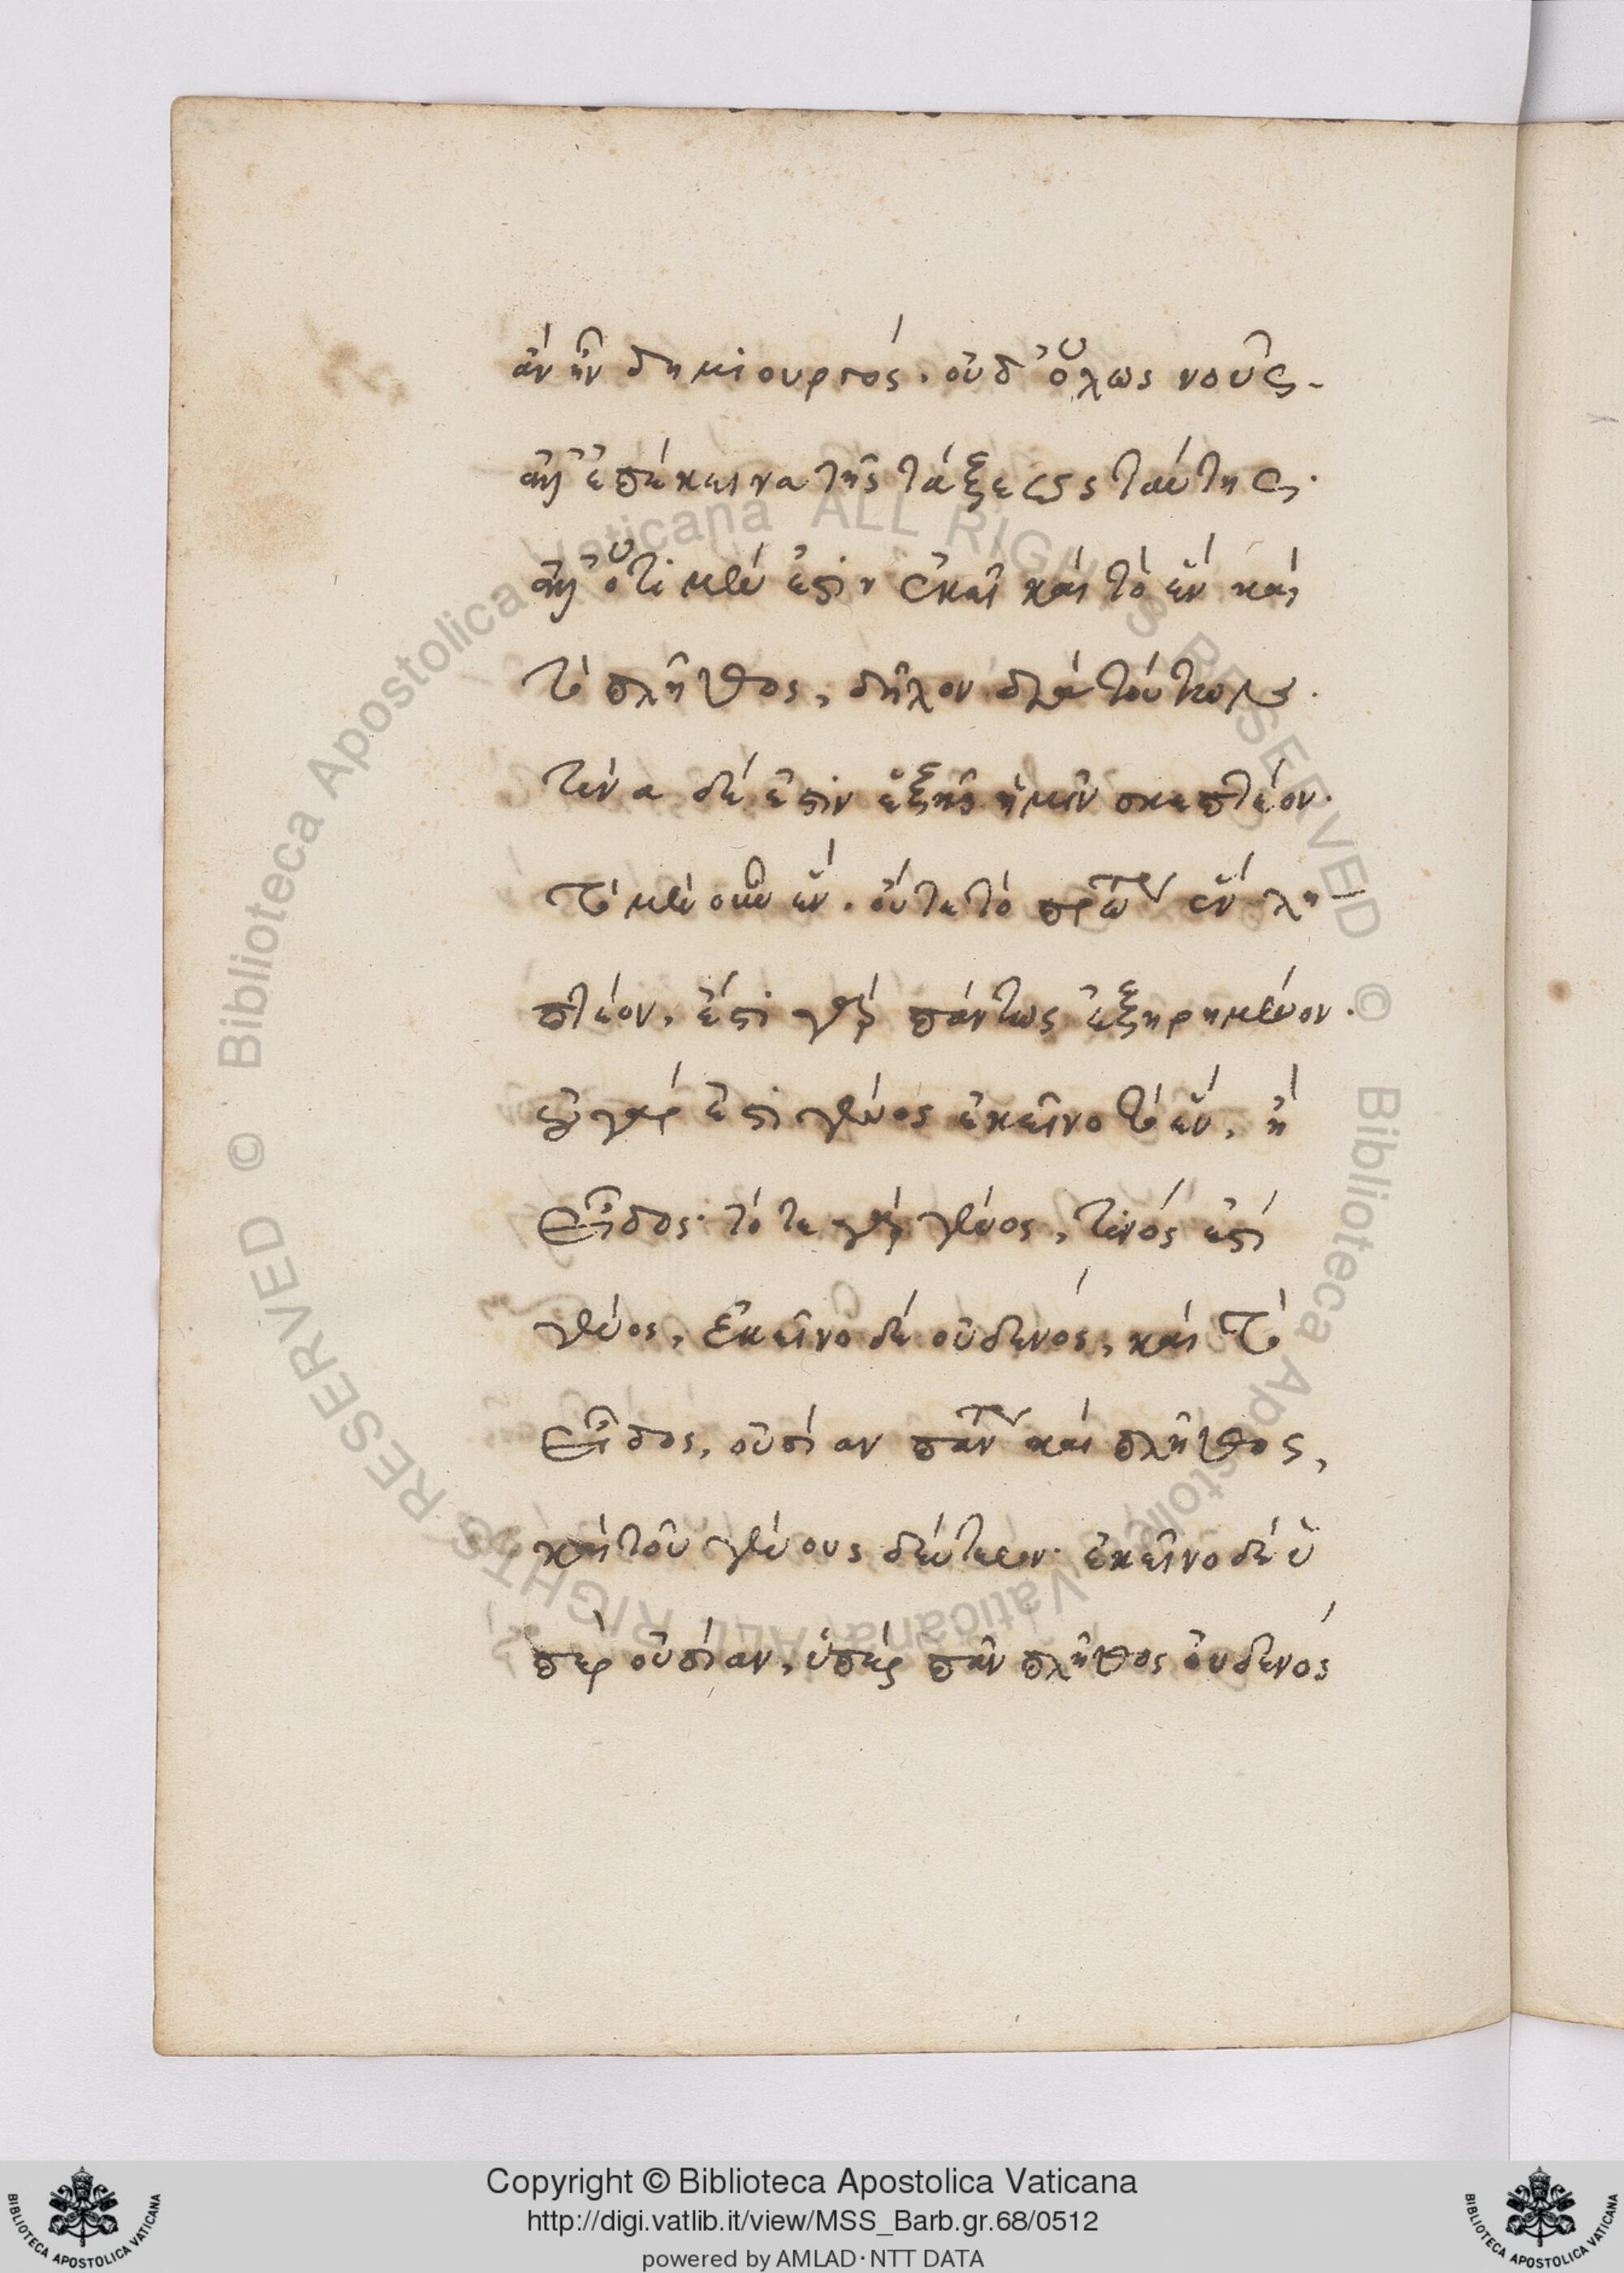 ἂν ἦν δημιουργός. οὐδ' ὅλως νοῦς.
ἀλλ' ἐπέκεινα τῆς τάξεως ταύτης.
ἀλλ' ὅτι μέν ἐστιν ἐκεῖ καὶ τὸ ἓν καὶ
τὸ πλῆθος, δῆλον διὰ τούτων.
τίνα δέ ἐστιν ἑξῆς ἡμῖν σκεπτέον.
τὸ μὲν οὖν ἓν. οὔτε τὸ πρῶτον ἓν λη
πτέον, ἔστι γὰρ πάντως ἐξηρημένον.
οὐ γάρ ἐστι γένος ἐκεῖνο τὸ ἓν, ἢ
εἶδος· τό τε γὰρ γένος, τινός ἐστι
γένος, ἐκεῖνο δὲ οὐδενός, καὶ τὸ
εἶδος, οὐσίαν πάντων καὶ πλῆθος,
καὶ τοῦ γένους δεύτερον· ἐκεῖνο δὲ ὑ
πὲρ οὐσίαν, ὑπὲρ πᾶν πλῆθος οὐδενός
© Biblioteca Apostolica Vaticana ALL RIGHTS RESERVED © Biblioteca Apostolica Vaticana ALL RIGHTS RESERVED
Copyright © Biblioteca Apostolica Vaticana
http://digi.vatlib.it/view/MSS_Barb.gr.68/0512
powered by AMLAD·NTT DATA
BIBLIOTECA APOSTOLICA VATICANA
BIBLIOTECA APOSTOLICA VATICANA